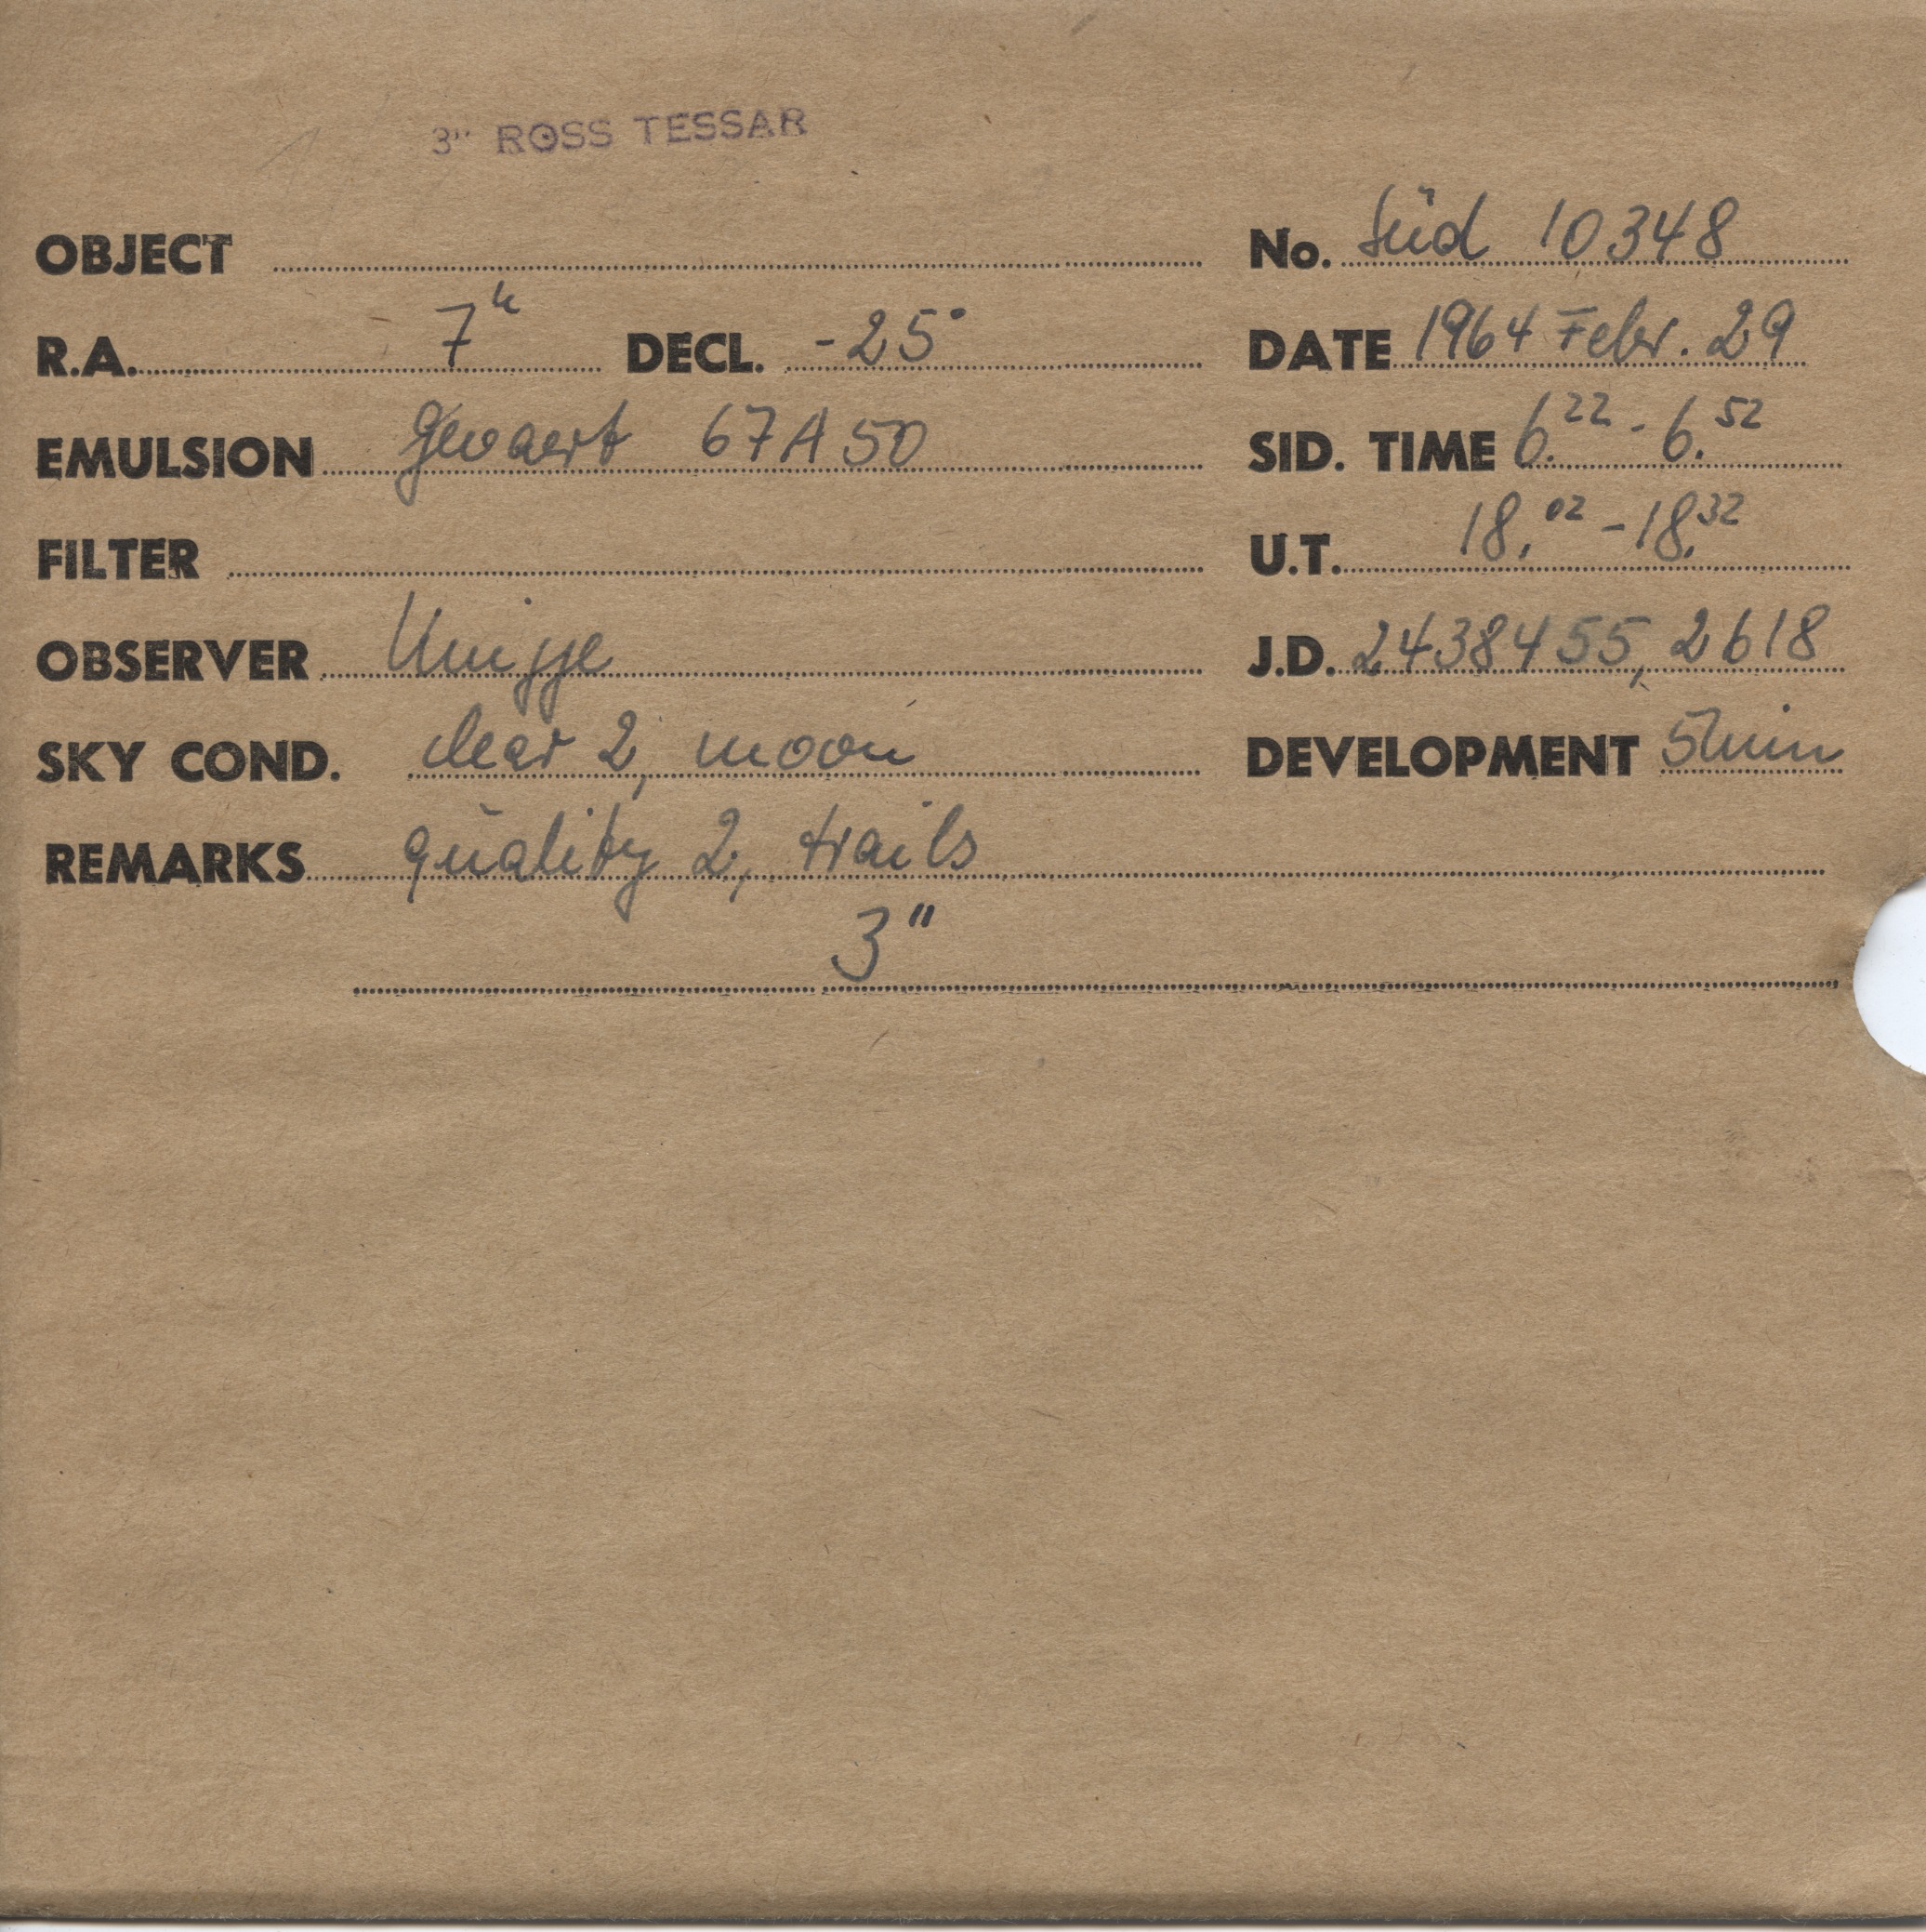 3" ROSS TESSAR
OBJECT
No. Süd 10348
R.A. 7h DECL. -25°
DATE 1964 Febr. 29
EMULSION Gevaert 67A50
SID. TIME 6.22 - 6.52
FILTER
U.T. 18.02 - 18.32
OBSERVER
J.D. 2438455,2618
SKY COND. clear 2, moon
DEVELOPMENT 5min
REMARKS quality 2, trails
3"